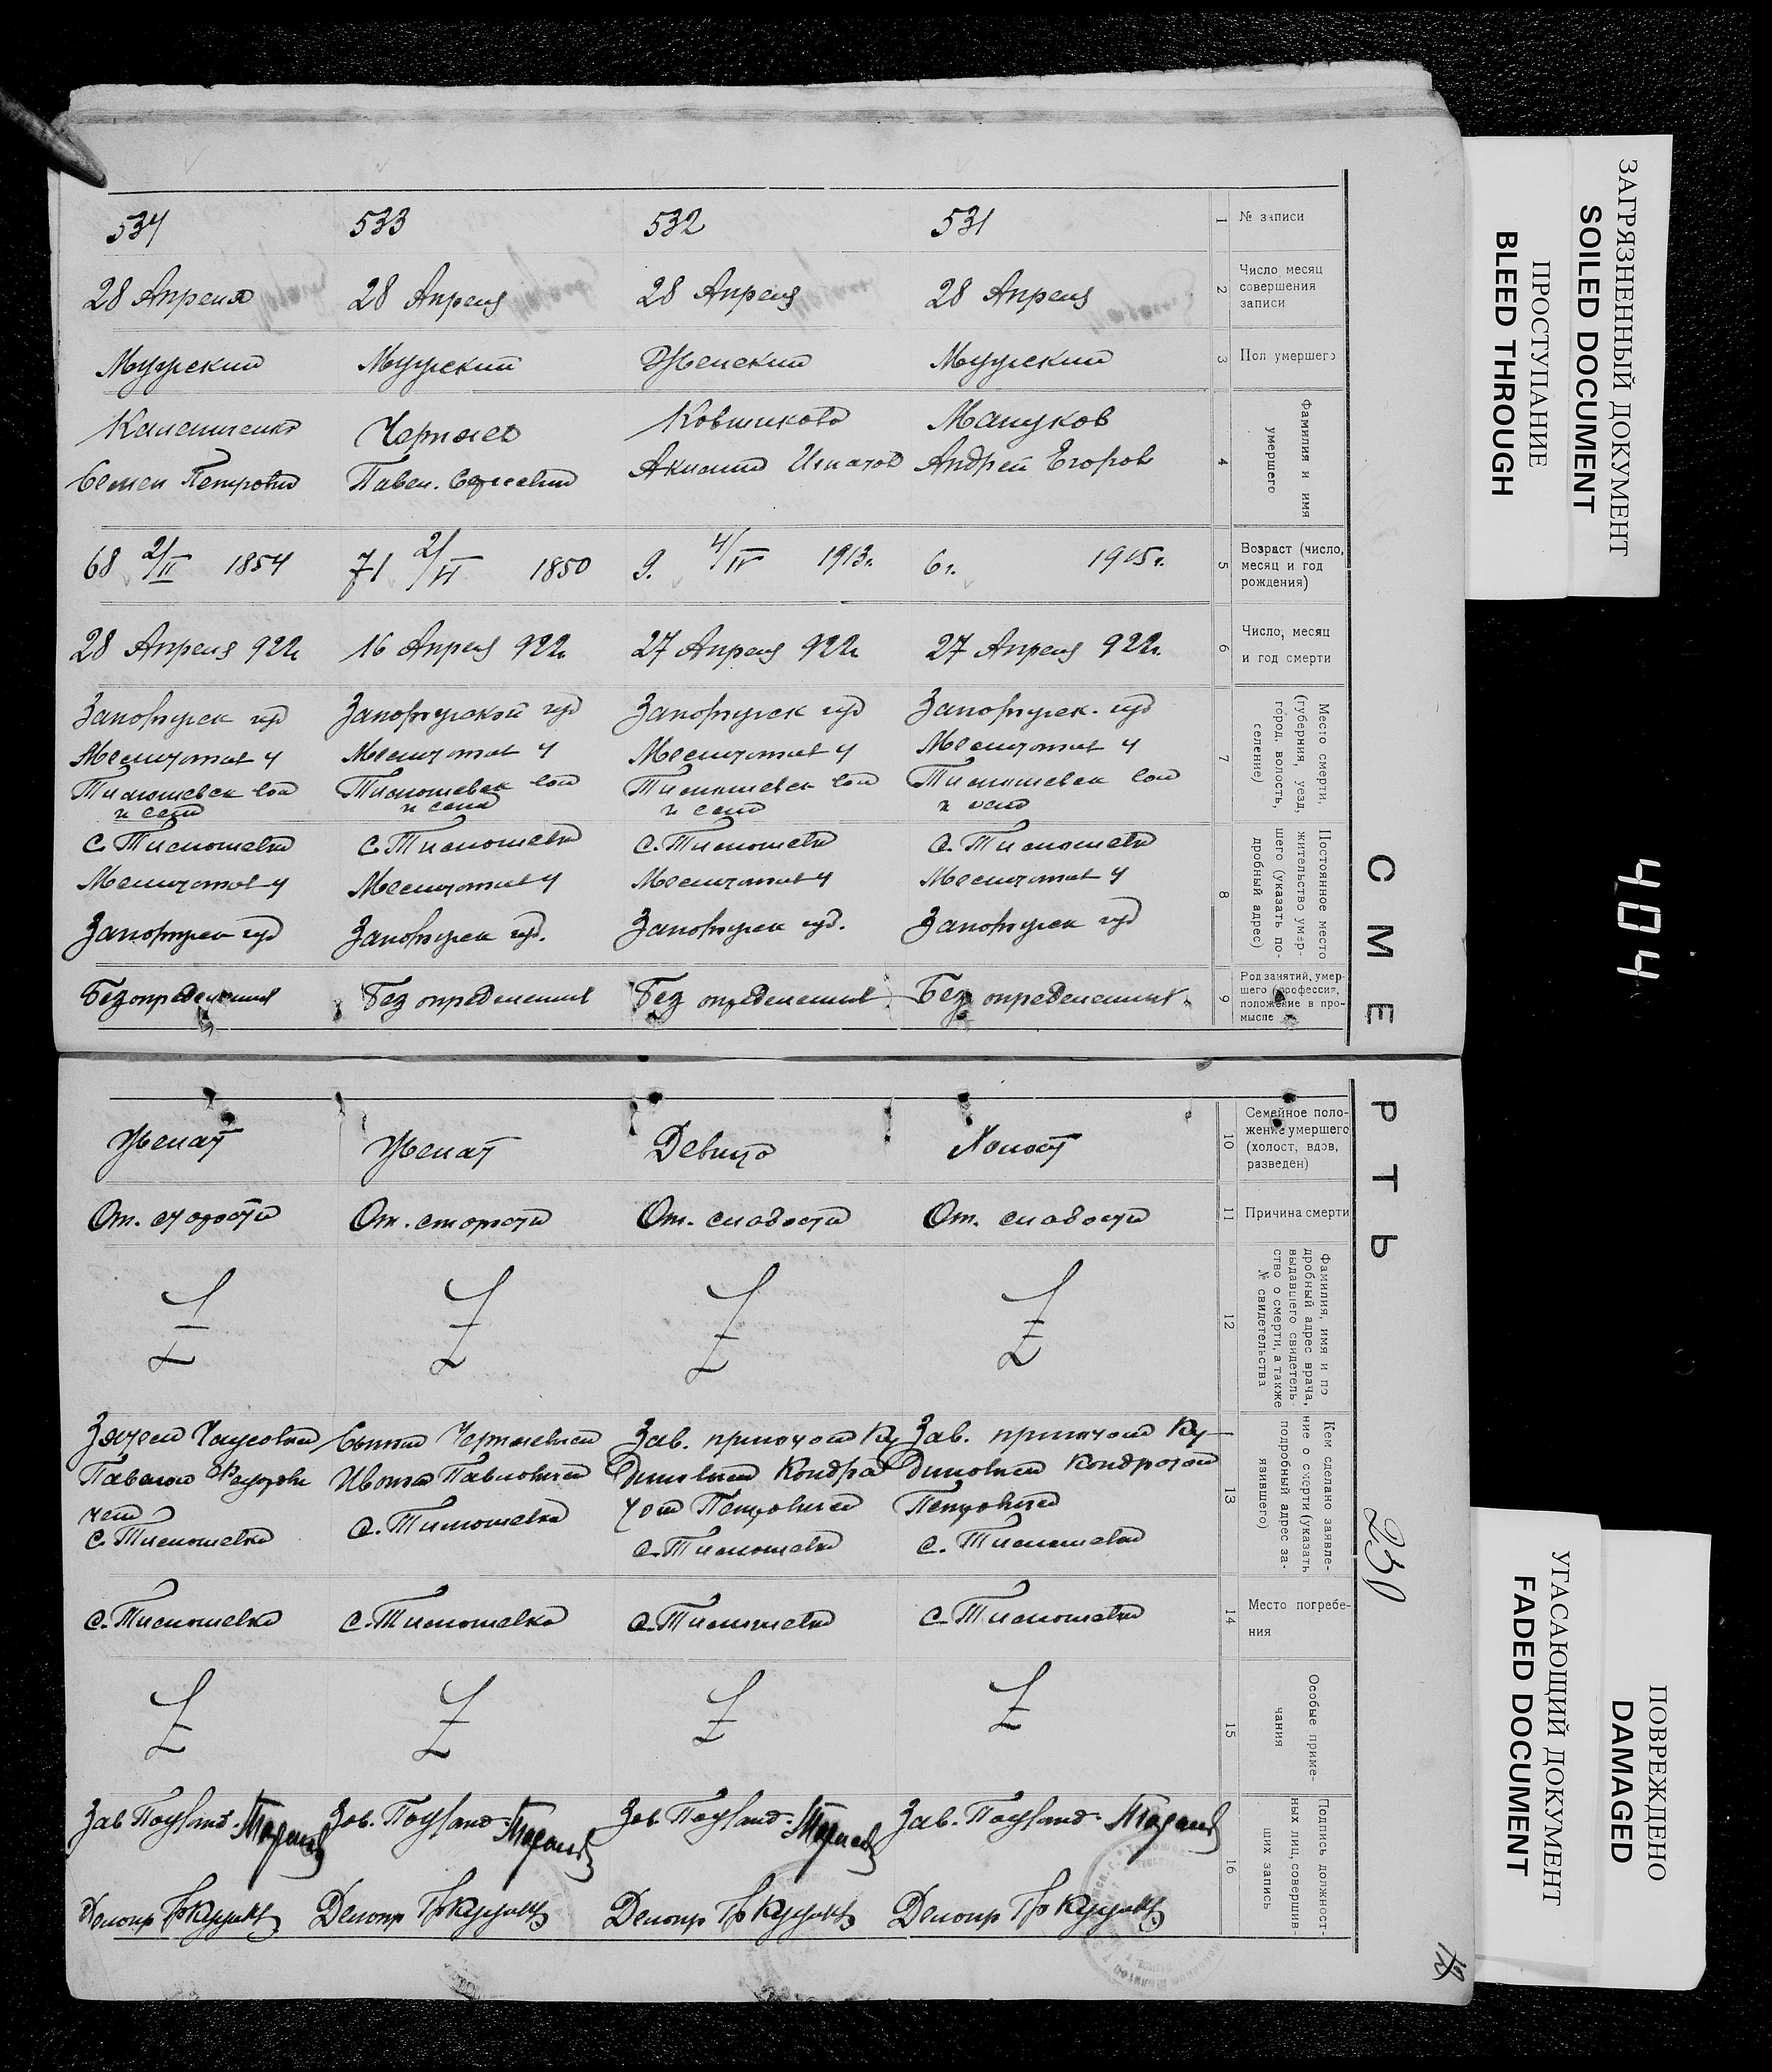 ЗАГРЯЗНЕННЫЙ ДОКУМЕНТ
SOILED DOCUMENT
ПРОСТУПАНИЕ
BLEED THROUGH
404
С М Е
1
№ записи
531
532
533
534
2
Число, месяц
совершения
записи
28 Апреля
28 Апреля
28 Апреля
28 Апреля
3
Пол умершего
Мужский
Женский
Мужский
Мужский
4
Фамилия и имя
умершего
Андрей Егоров
Павел
Семен Петрович
5
Возраст (число,
месяц и год
рождения)
6 г. 1915 г.
9. 4/IV 1913 г.
71 2/VI 1850
68 2/II 1854
6
Число, месяц
и год смерти
27 Апреля 922 г.
27 Апреля 922 г.
16 Апреля 922 г.
28 Апреля 922 г.
7
Место смерти,
(губерния, уезд,
город, волость,
селение)
Запорожск. губ
Мелитопол у
Тимошевск вол
и село
Запорожск губ
Мелитопол у
Тимошевск вол
и село
Запорожской губ
Мелитопол у
Тимошевск вол
и село
Запорожск губ
Мелитопол у
Тимошевск вол
и село
8
Постоянное место
жительство умер-
шего (указать по-
дробный адрес)
с. Тимошевка
Мелитопол у
Запорожск губ
с. Тимошевка
Мелитопол у
Запорожск губ.
с. Тимошевка
Мелитопол у
Запорожск губ.
с. Тимошевка
Мелитопол у
Запорожск губ
9
Род занятий, умер-
шего (профессия,
положение в про-
мысле
Без определения
Без определения
Без определения
Без определения
Р Т Ь
230
10
Семейное поло-
жение умершего
(холост, вдов,
разведен)
Холост
Девица
Женат
Женат
11
Причина смерти
От. слабости
От. слабости
От. старости
От. старости
12
Фамилия, имя и по
дробный адрес врача,
выдавшего свидетель-
ство о смерти, а также
№ свидетельства
13
Кем сделано заявле-
ние о смерти (указать
подробный адрес за-
явившего)
Зав. приютом Ку-
диновым Кондратом
Петровичем
с. Тимошевка
Зав. приютом Ку
диновым Кондра
том Петровичем
с. Тимошевка
Сыном
Павловичем
с. Тимошевка
Зятем
Павлом
чем
с. Тимошевка
14
Место погребе-
ния
с. Тимошевка
с. Тимошевка
с. Тимошевка
с. Тимошевка
15
Особые приме-
чания
16
Подпись должност-
ных лиц, совершив-
ших запись
Зав.
Делопр
Зав
Делопр
Зав.
Делопр
Зав
Делопр
УГАСАЮЩИЙ ДОКУМЕНТ
FADED DOCUMENT
ПОВРЕЖДЕНО
DAMAGED